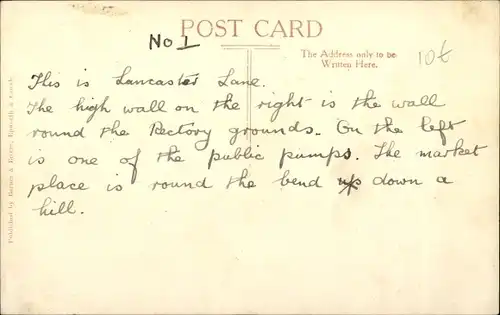 POST CARD
No 1
The Address only to be
Written Here.
10t
This is Lancaster Lane.
The high wall on the right is the wall
round the Rectory grounds. On the left
is one of the public pumps. The market
place is round the bend up down a
hill.
Published by Barnes &